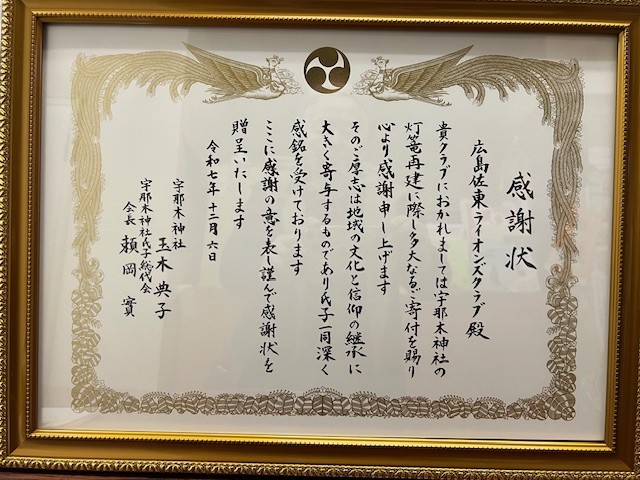 感謝状
広島佐東ライオンズクラブ殿
貴クラブにおかれましては宇那木神社の
灯篭再建に際し多大なるご寄付を賜り
心より感謝申し上げます
そのご厚志は地域の文化と信仰の継承に
大きく寄与するものであり氏子一同深く
感銘を受けております
ここに感謝の意を表し謹んで感謝状を
贈呈いたします
令和七年十二月六日
宇那木神社
玉木典子
宇那木神社氏子総代会
会長 頼岡實